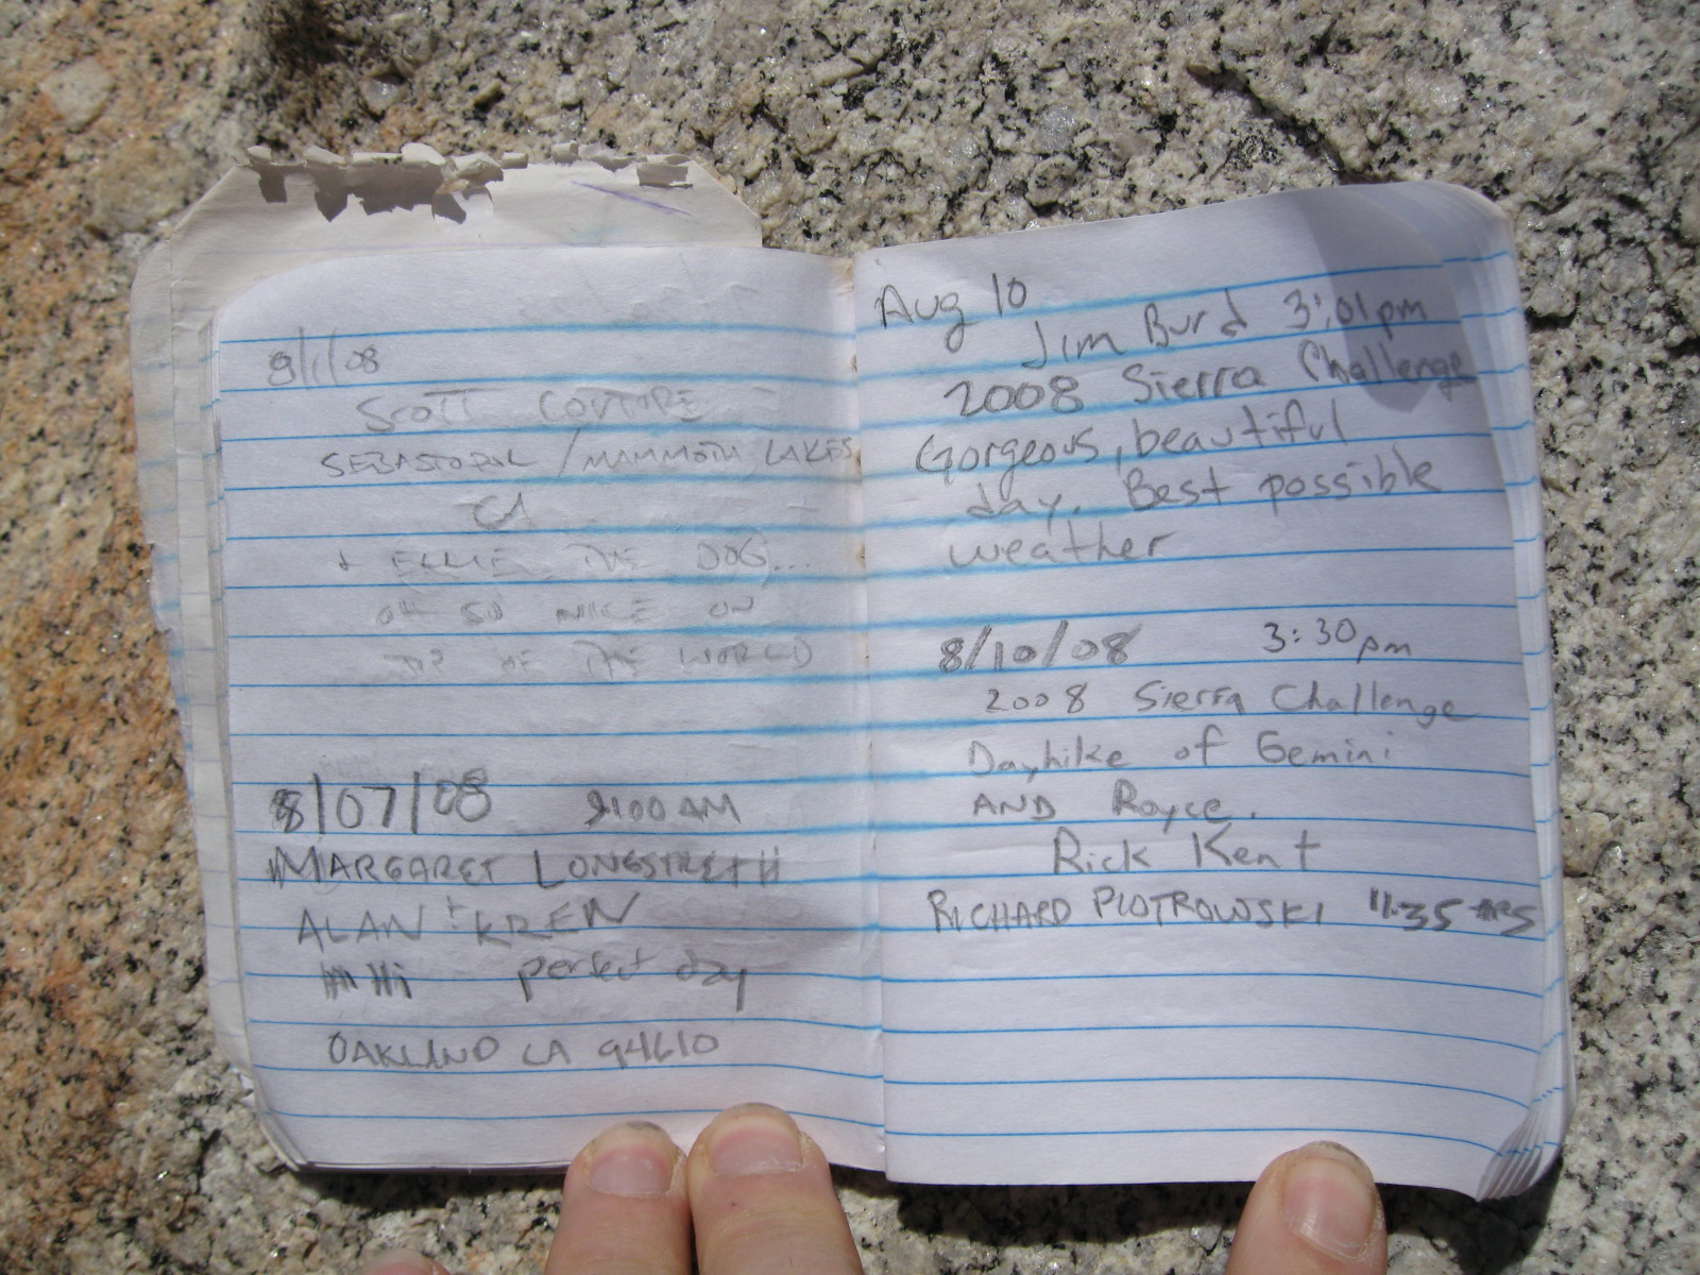 8/1/08
SCOTT COUTURE
SEBASTOPOL / MAMMOTH LAKES
CA
+ ELLIE THE DOG...
OH SO NICE ON
TOP OF THE WORLD
8/07/08 9:00 AM
MARGARET LONGSTRETH
ALAN + KREW
perfect day
OAKLAND CA 94610
Aug 10
Jim Burd 3:01pm
2008 Sierra Challenge
Gorgeous, beautiful
day. Best possible
weather
8/10/08 3:30pm
2008 Sierra Challenge
Dayhike of Gemini
AND Royce.
Rick Kent
RICHARD PIOTROWSKI 11:35 HRS